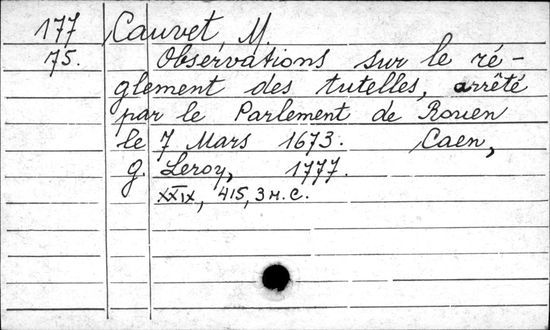 177 Cauvet, M.
75. Observations sur le ré-
glement des tutelles, arrêté
par le Parlement de Rouen
le 7 Mars 1673. Caen,
g. Leroy, 1777.
XXIX, 415, 3 н. с.